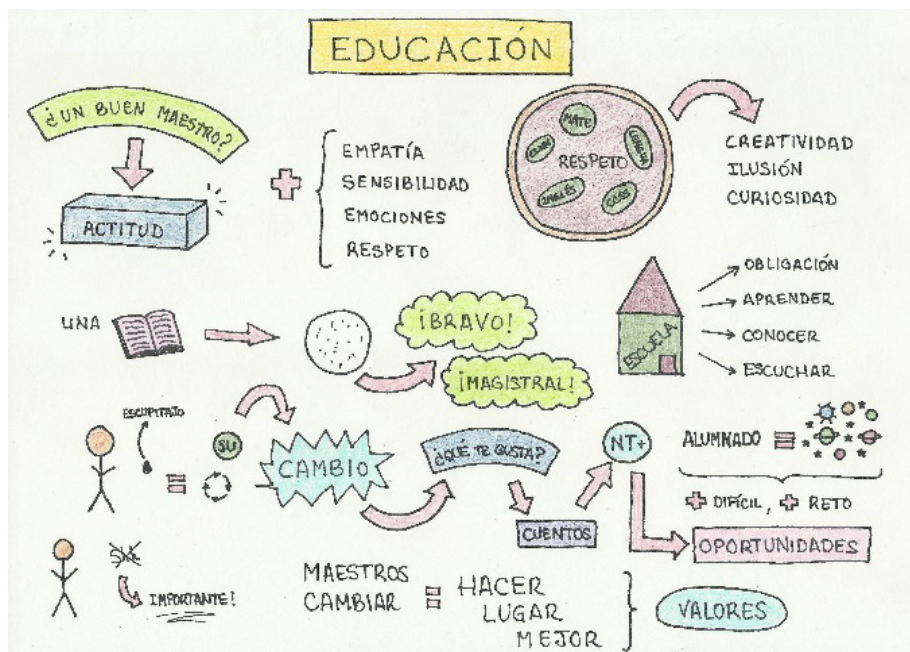 EDUCACIÓN
¿UN BUEN MAESTRO?
ACTITUD
EMPATÍA
SENSIBILIDAD
EMOCIONES
RESPETO
MATE
LENGUA
RESPETO
INGLÉS
CREATIVIDAD
ILUSIÓN
CURIOSIDAD
UNA
¡BRAVO!
¡MAGISTRAL!
ESCUELA
OBLIGACIÓN
APRENDER
CONOCER
ESCUCHAR
ESCUPITAJO
=
SU
CAMBIO
¿QUÉ TE GUSTA?
CUENTOS
NT+
ALUMNADO =
+ DIFÍCIL, + RETO
OPORTUNIDADES
IMPORTANTE!
MAESTROS
CAMBIAR
=
HACER
LUGAR
MEJOR
VALORES